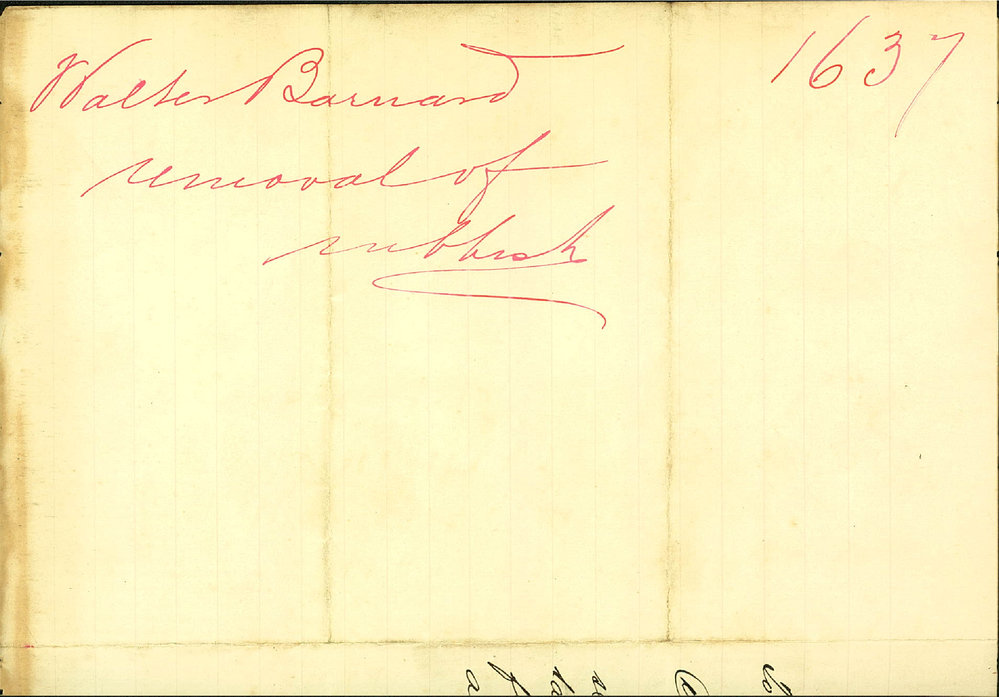 Walter Barnard
1637
removal of
rubbish